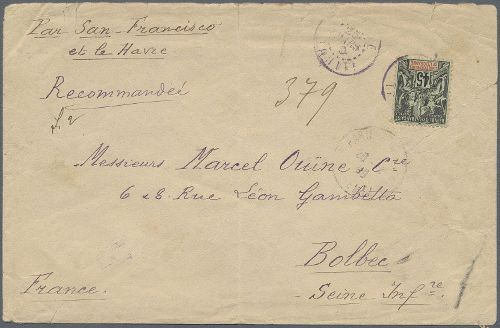 Par San-Francisco
et le Havre
Recommandée
379
Messieurs Marcel Oüine Cie
6 & 8. Rue Léon Gambetta
Bolbec
Seine Infre
France.